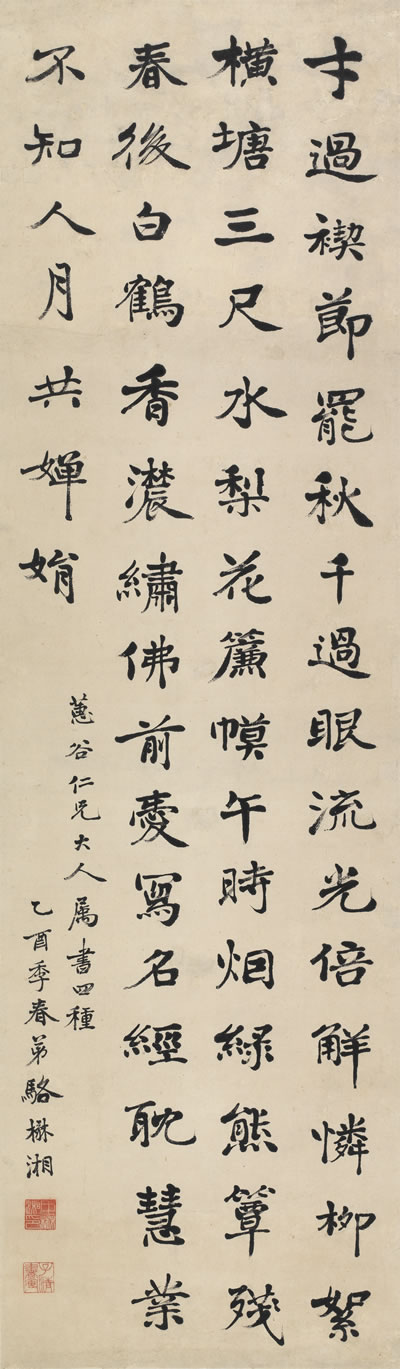 才過禊節罷秋千過眼流光倍解憐柳絮
橫塘三尺水梨花簾幙午時烟綠熊簟殘
春後白鶴香濃繡佛前憂寫名經耽慧業
不知人月共嬋娟
蕙谷仁兄大人属書四種
乙酉季春弟駱楙湘